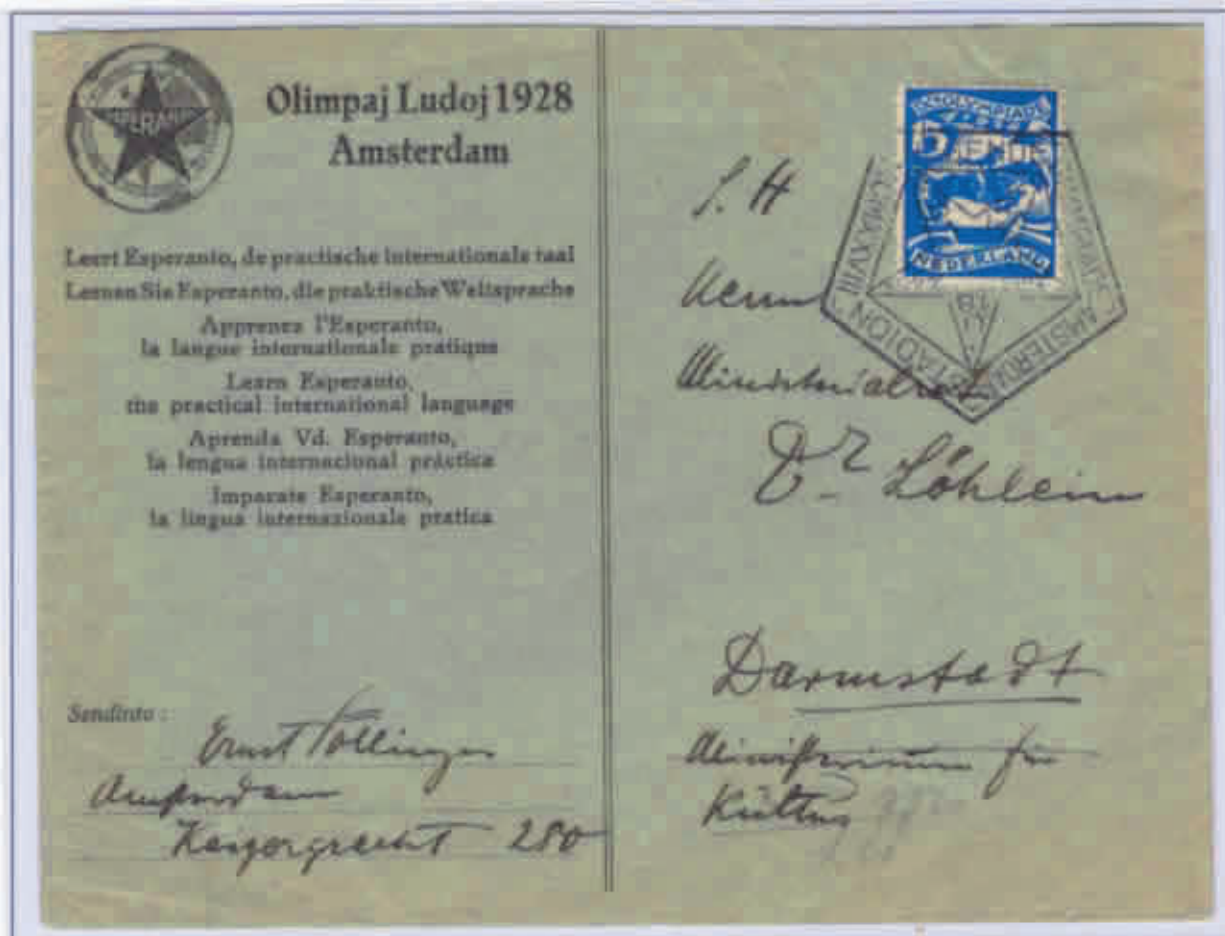 ESPERANTO
Olimpaj Ludoj 1928
Amsterdam
Leert Esperanto, de practische internationale taal
Lernen Sie Esperanto, die praktische Weltsprache
Apprenez l'Esperanto,
la langue internationale pratique
Learn Esperanto,
the practical international language
Aprenda Vd. Esperanto,
la lengua internacional práctica
Imparate Esperanto,
la lingua internazionale pratica
Sendinto :
Ernst
Amsterdam
Keizersgracht 280
OLYMPIADE
15
NEDERLAND
AMSTERDAM STADION
MCMXXVIII
S. H
Herrn
Ministerialrat
Dr Löhlein
Darmstadt
Ministerium für
Kultus